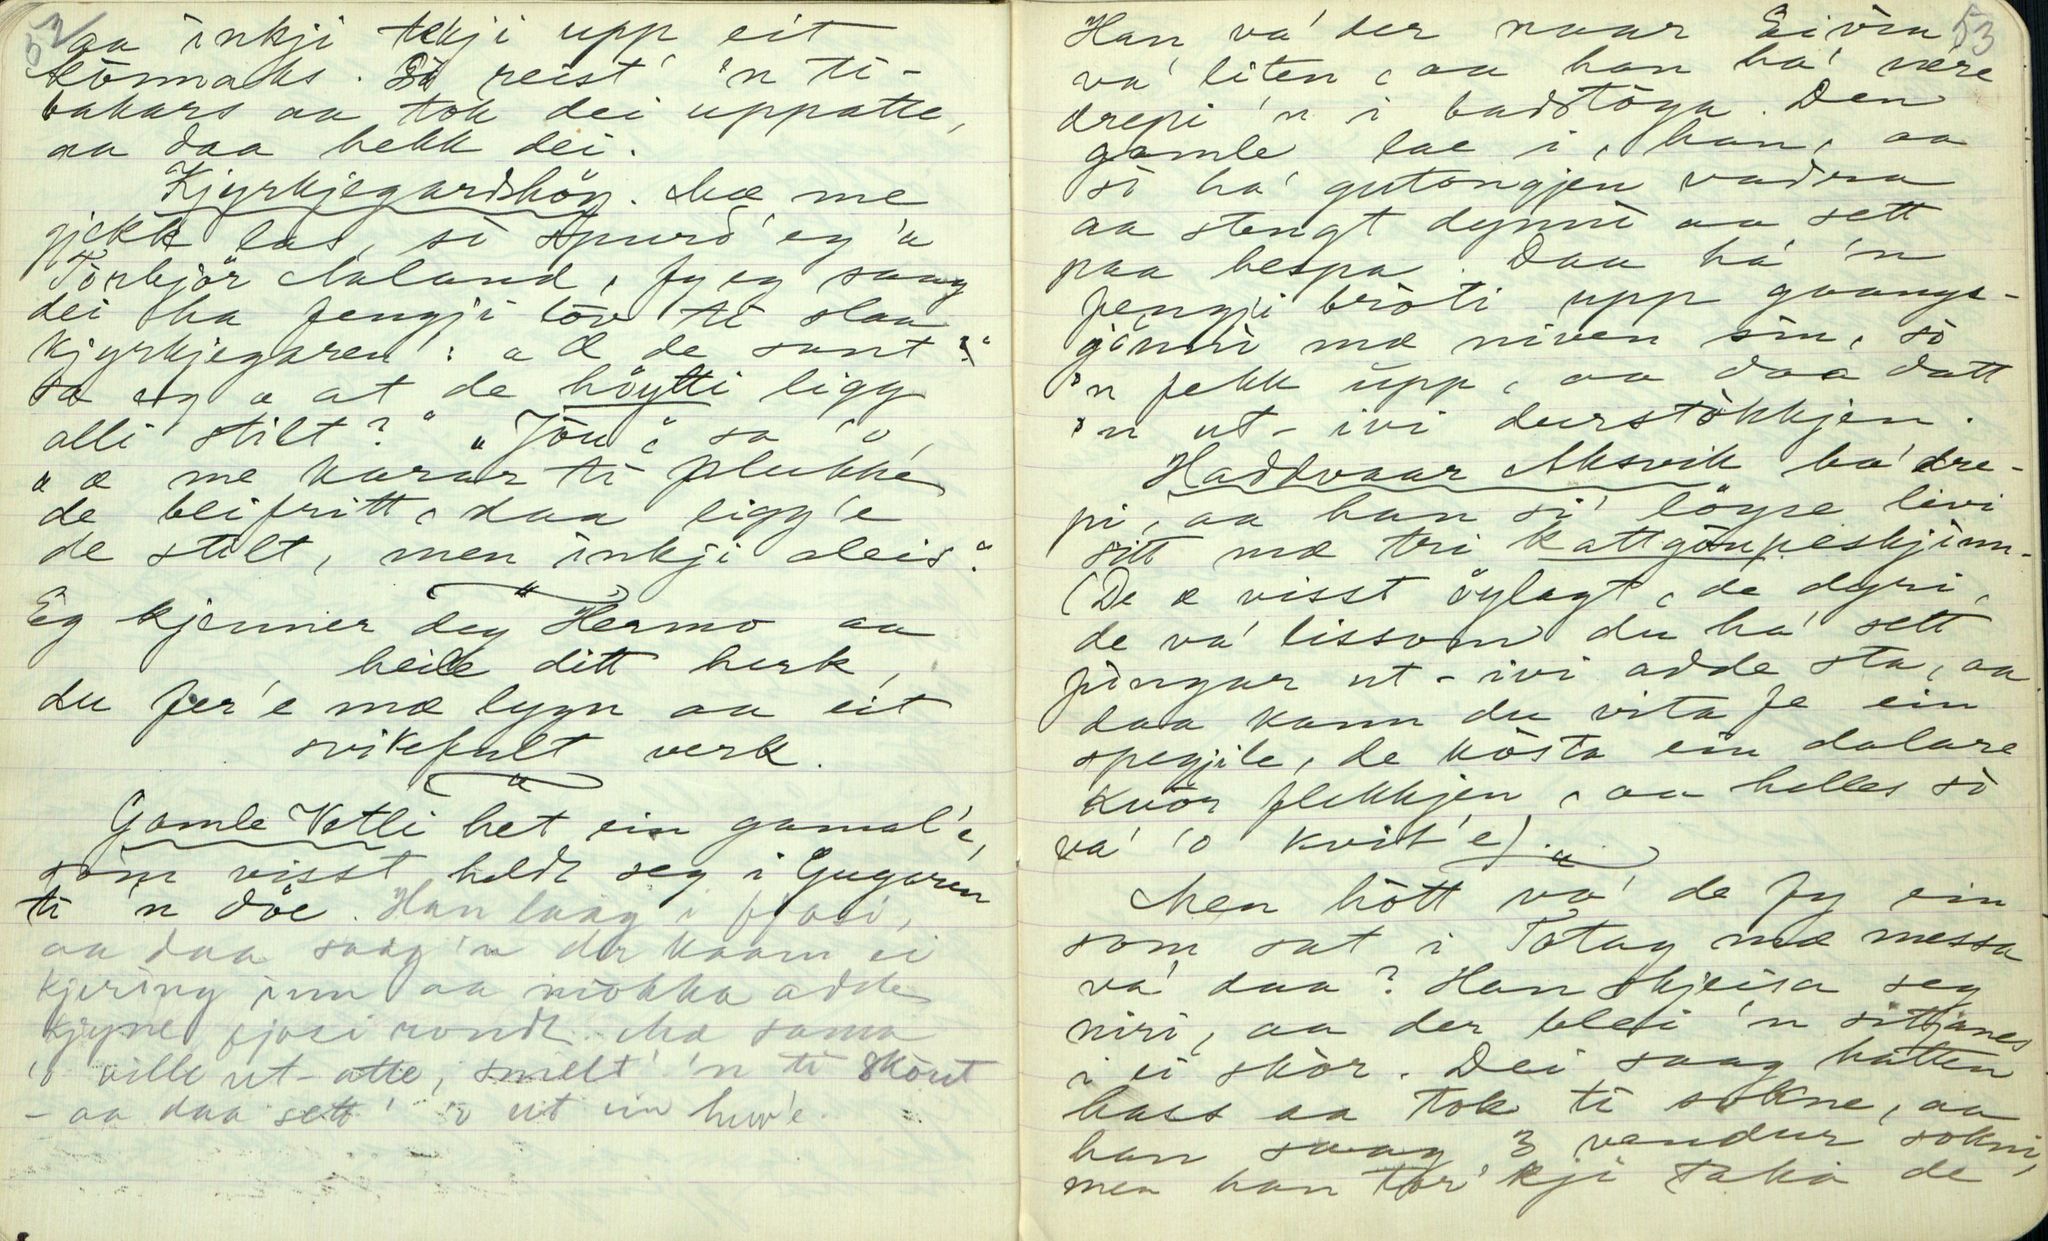 52
aa inkji tekji upp eit
könnaks. Så reist' 'n ti-
bakars aa tok dei uppatte,
aa daa hekk dei.
Kjyrkjegardshöy. Mæ me
gjekk las, si spurd' eg 'a
Torbjör Aaland, fy eg saag
dei ha fengji löv ti slaa
kjyrkjegaren: „Æ de sant"
sa eg „at de höytti ligg
alli stilt?" „Jöu", sa 'o,
„æ me karar ti plukke
de beifritt, daa ligg'e
de stilt, men inkji aleis."
Eg kjenner deg Hermo aa
heile ditt herk,
du fer'e mæ lygn aa eit
svikefult verk.
Gamle Vetli het ein gamal'e,
som visst heldt seg i Gugaren
ti 'n döe. Han laag i fjosi,
aa daa saag 'n der kaam ei
kjering inn aa miokka adde
kjyne fjosi rondt. Mæ sama
'o ville ut-atte, smelt' 'n ti sköut
- aa daa sett' 'o ut ein huv'e.
53
Han va' der naar Eivin
va' liten, aa han ha' være
drepi 'n i badstöga. Den
gamle lae i, han, aa
si ha' gutongjen vadna
aa stengt dynni aa sett
paa hespa. Daa ha' 'n
fengji bröti upp gvangs-
jönni mæ niven sin, so
'n fekk upp, aa daa datt
'n ut-ivi durstökkjen.
Haddvaar Aksvik ha' dre-
pi, aa han si' löyse livi
sitt mæ tri kattgöupeskjinn.
(De æ visst öylagt, de dyri,
de va' lissom du ha' sett
fingar ut-ivi adde sta, aa
daa kann du vita fe ein
spegjile, de kösta ein dalare
kvör flekkjen, aa helles so
va' 'o kvit'e).
Men hött va' de fy ein
som sat i Totag mæ messa
va' daa? Han skjeisa seg
niri, aa der blei 'n sitjanes
i ei skör. Dei saag hatten
hass aa tok ti sokne, aa
han saag 3 vendur sokni,
men han tor'kji taka de